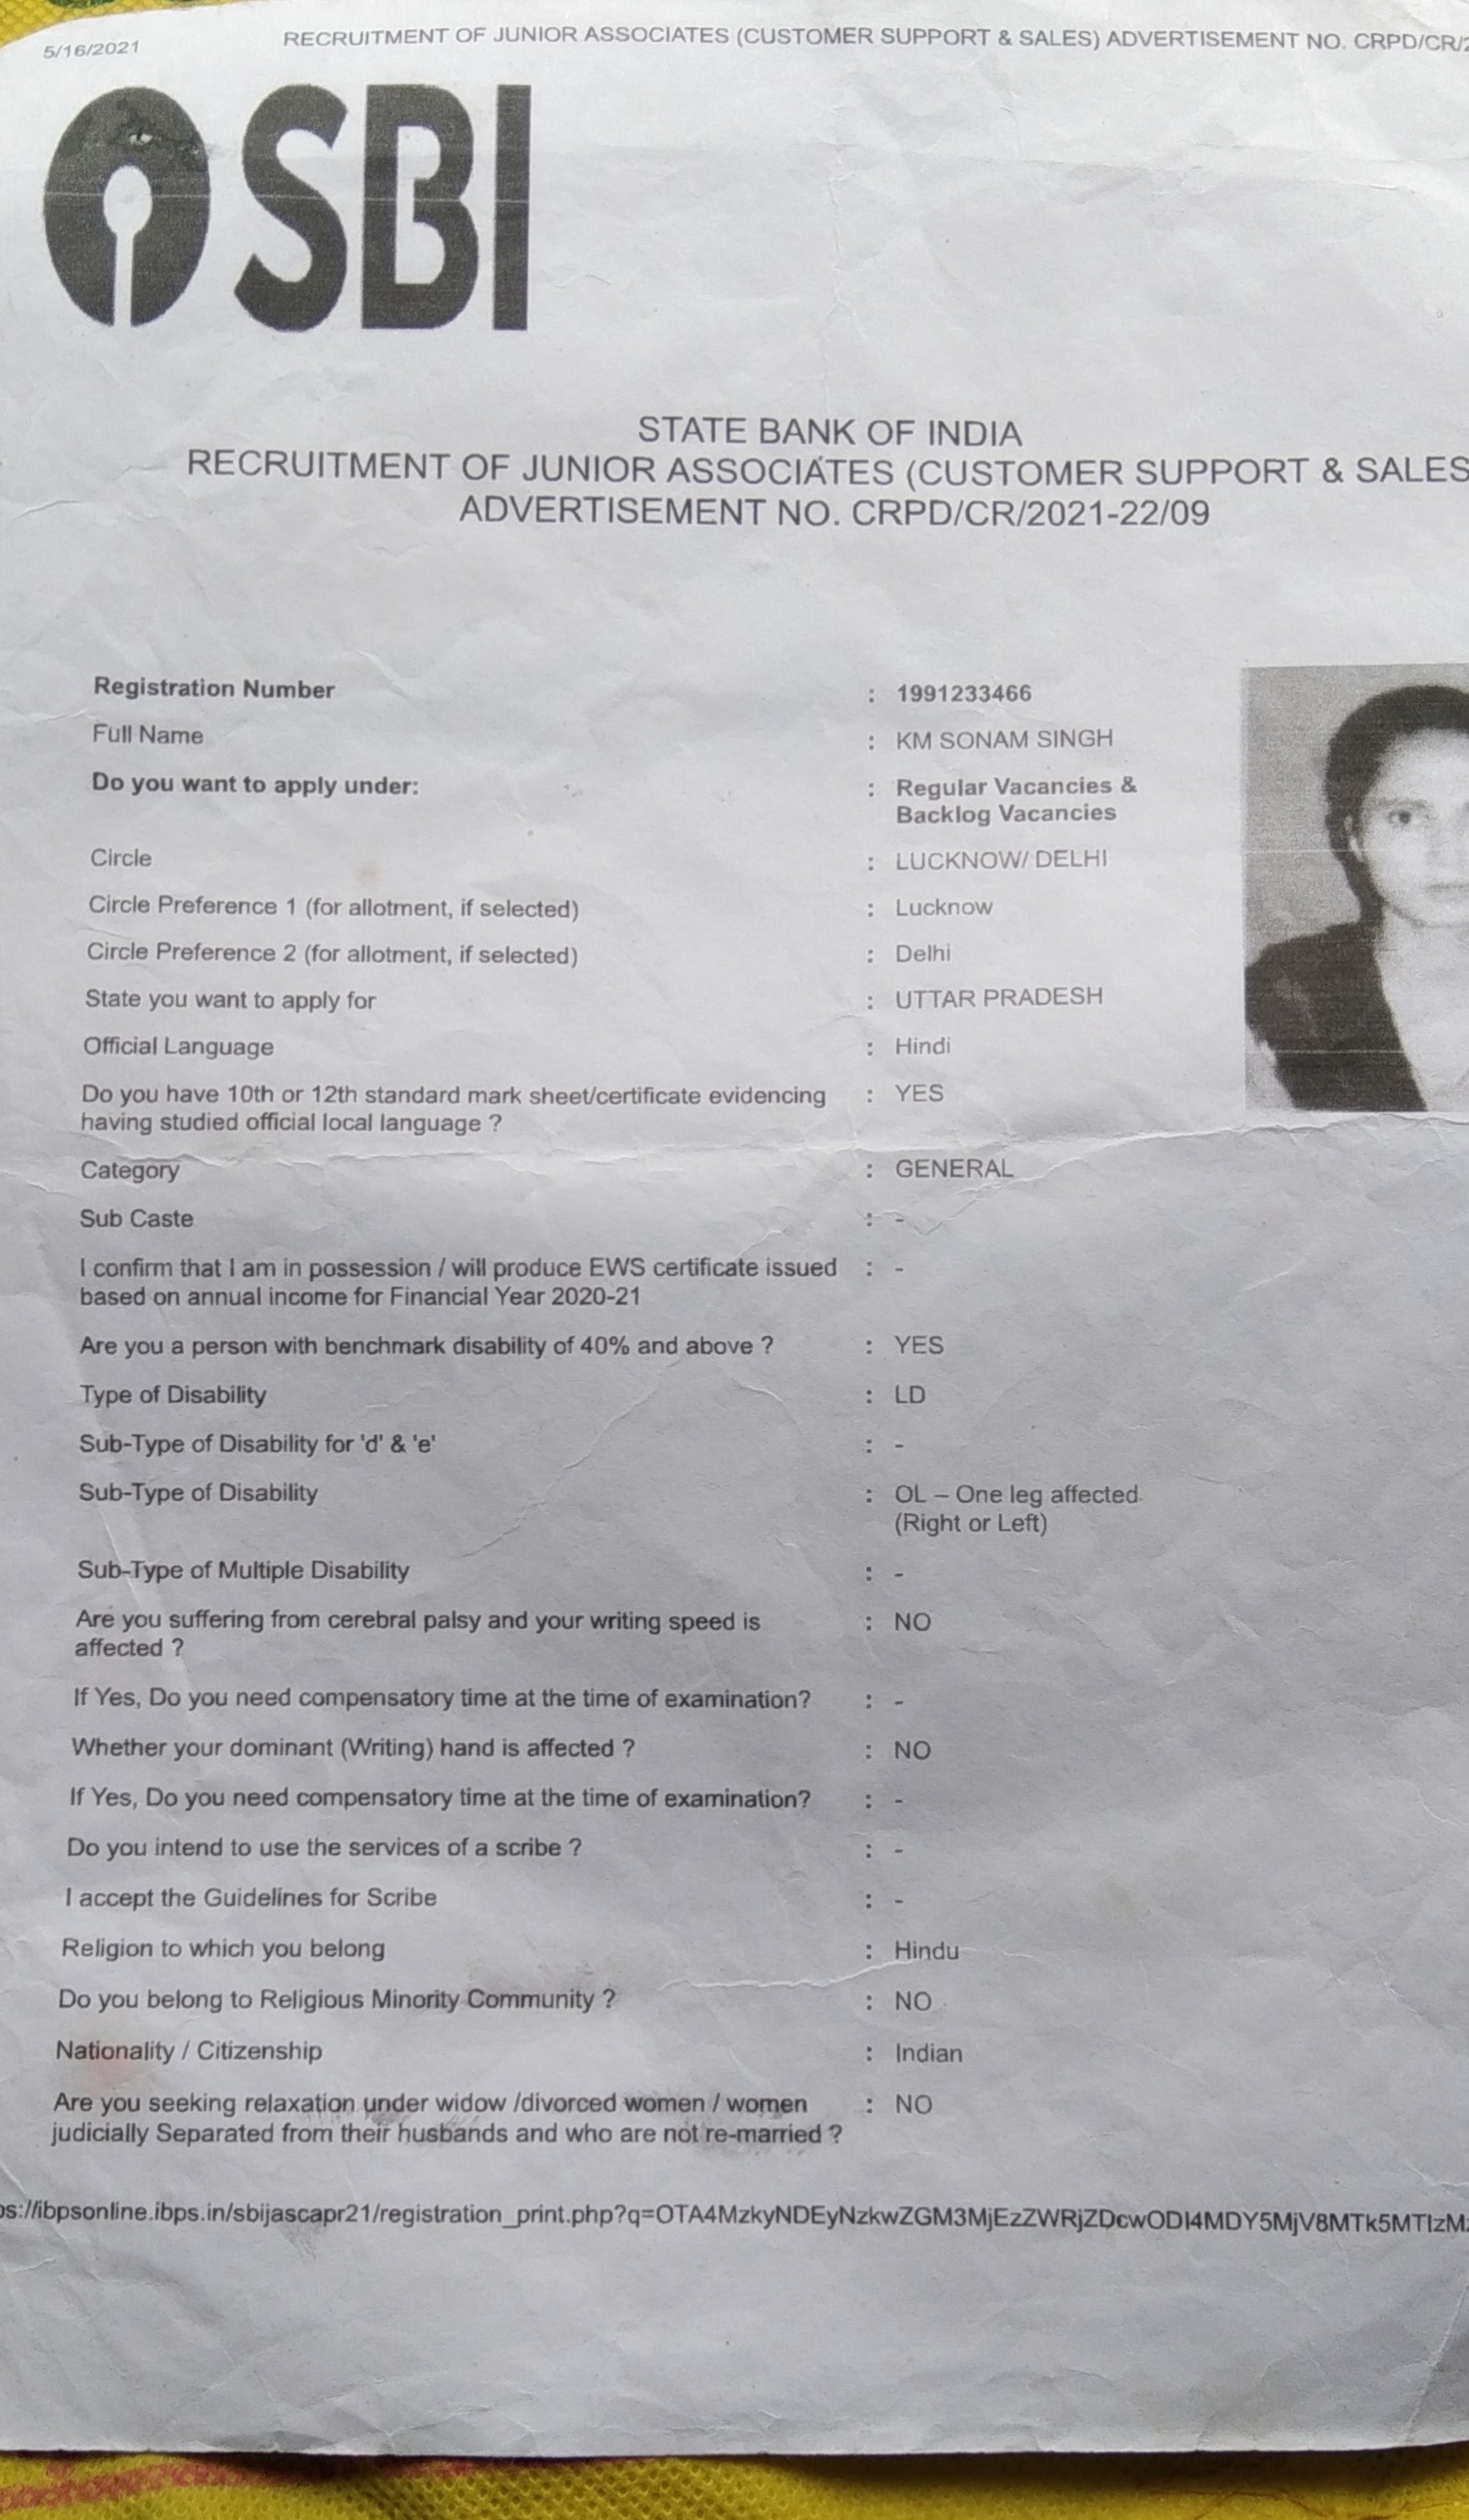 5/16/2021 RECRUITMENT OF JUNIOR ASSOCIATES (CUSTOMER SUPPORT & SALES) ADVERTISEMENT NO. CRPD/CR/2
SBI
STATE BANK OF INDIA
RECRUITMENT OF JUNIOR ASSOCIATES (CUSTOMER SUPPORT & SALES
ADVERTISEMENT NO. CRPD/CR/2021-22/09
Registration Number : 1991233466
Full Name : KM SONAM SINGH
Do you want to apply under: : Regular Vacancies &
Backlog Vacancies
Circle : LUCKNOW/ DELHI
Circle Preference 1 (for allotment, if selected) : Lucknow
Circle Preference 2 (for allotment, if selected) : Delhi
State you want to apply for : UTTAR PRADESH
Official Language : Hindi
Do you have 10th or 12th standard mark sheet/certificate evidencing : YES
having studied official local language ?
Category : GENERAL
Sub Caste : -
I confirm that I am in possession / will produce EWS certificate issued : -
based on annual income for Financial Year 2020-21
Are you a person with benchmark disability of 40% and above ? : YES
Type of Disability : LD
Sub-Type of Disability for 'd' & 'e' : -
Sub-Type of Disability : OL – One leg affected
(Right or Left)
Sub-Type of Multiple Disability : -
Are you suffering from cerebral palsy and your writing speed is : NO
affected ?
If Yes, Do you need compensatory time at the time of examination? : -
Whether your dominant (Writing) hand is affected ? : NO
If Yes, Do you need compensatory time at the time of examination? : -
Do you intend to use the services of a scribe ? : -
I accept the Guidelines for Scribe : -
Religion to which you belong : Hindu
Do you belong to Religious Minority Community ? : NO
Nationality / Citizenship : Indian
Are you seeking relaxation under widow /divorced women / women : NO
judicially Separated from their husbands and who are not re-married ?
ps://ibpsonline.ibps.in/sbijascapr21/registration_print.php?q=OTA4MzkyNDEyNzkwZGM3MjEzZWRjZDcwODI4MDY5MjV8MTk5MTIzM